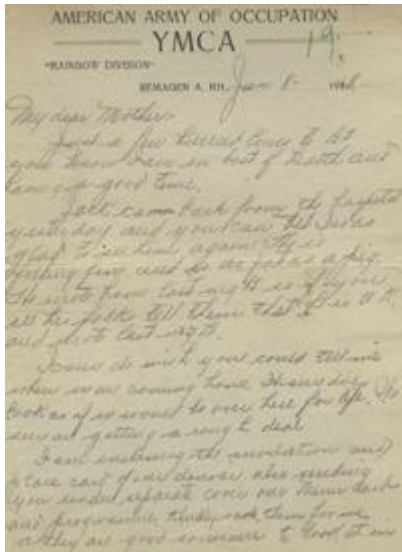 AMERICAN ARMY OF OCCUPATION
YMCA
19.
"RAINBOW DIVISION"
REMAGEN A. RH., Jan 8 -
My dear Mother
Just a few hurried lines to let
you know I am in best of health and
a good time.
Jack came back from the hospital
yesterday and you can bet I was
glad to see him again. He is
feeling fine and is as fat as a pig.
He wrote home last night so if you
see his folks tell them that he is O.K.
and wrote last night.
I sure do wish you could tell me
when we are coming home. It sure does
look as if we would be over here for life.
sure are getting a rough deal
I am enclosing the invitation and
a card of our dinner also sending
you under separate cover our
and programme. Kindly save them for me
as they are good to look at in